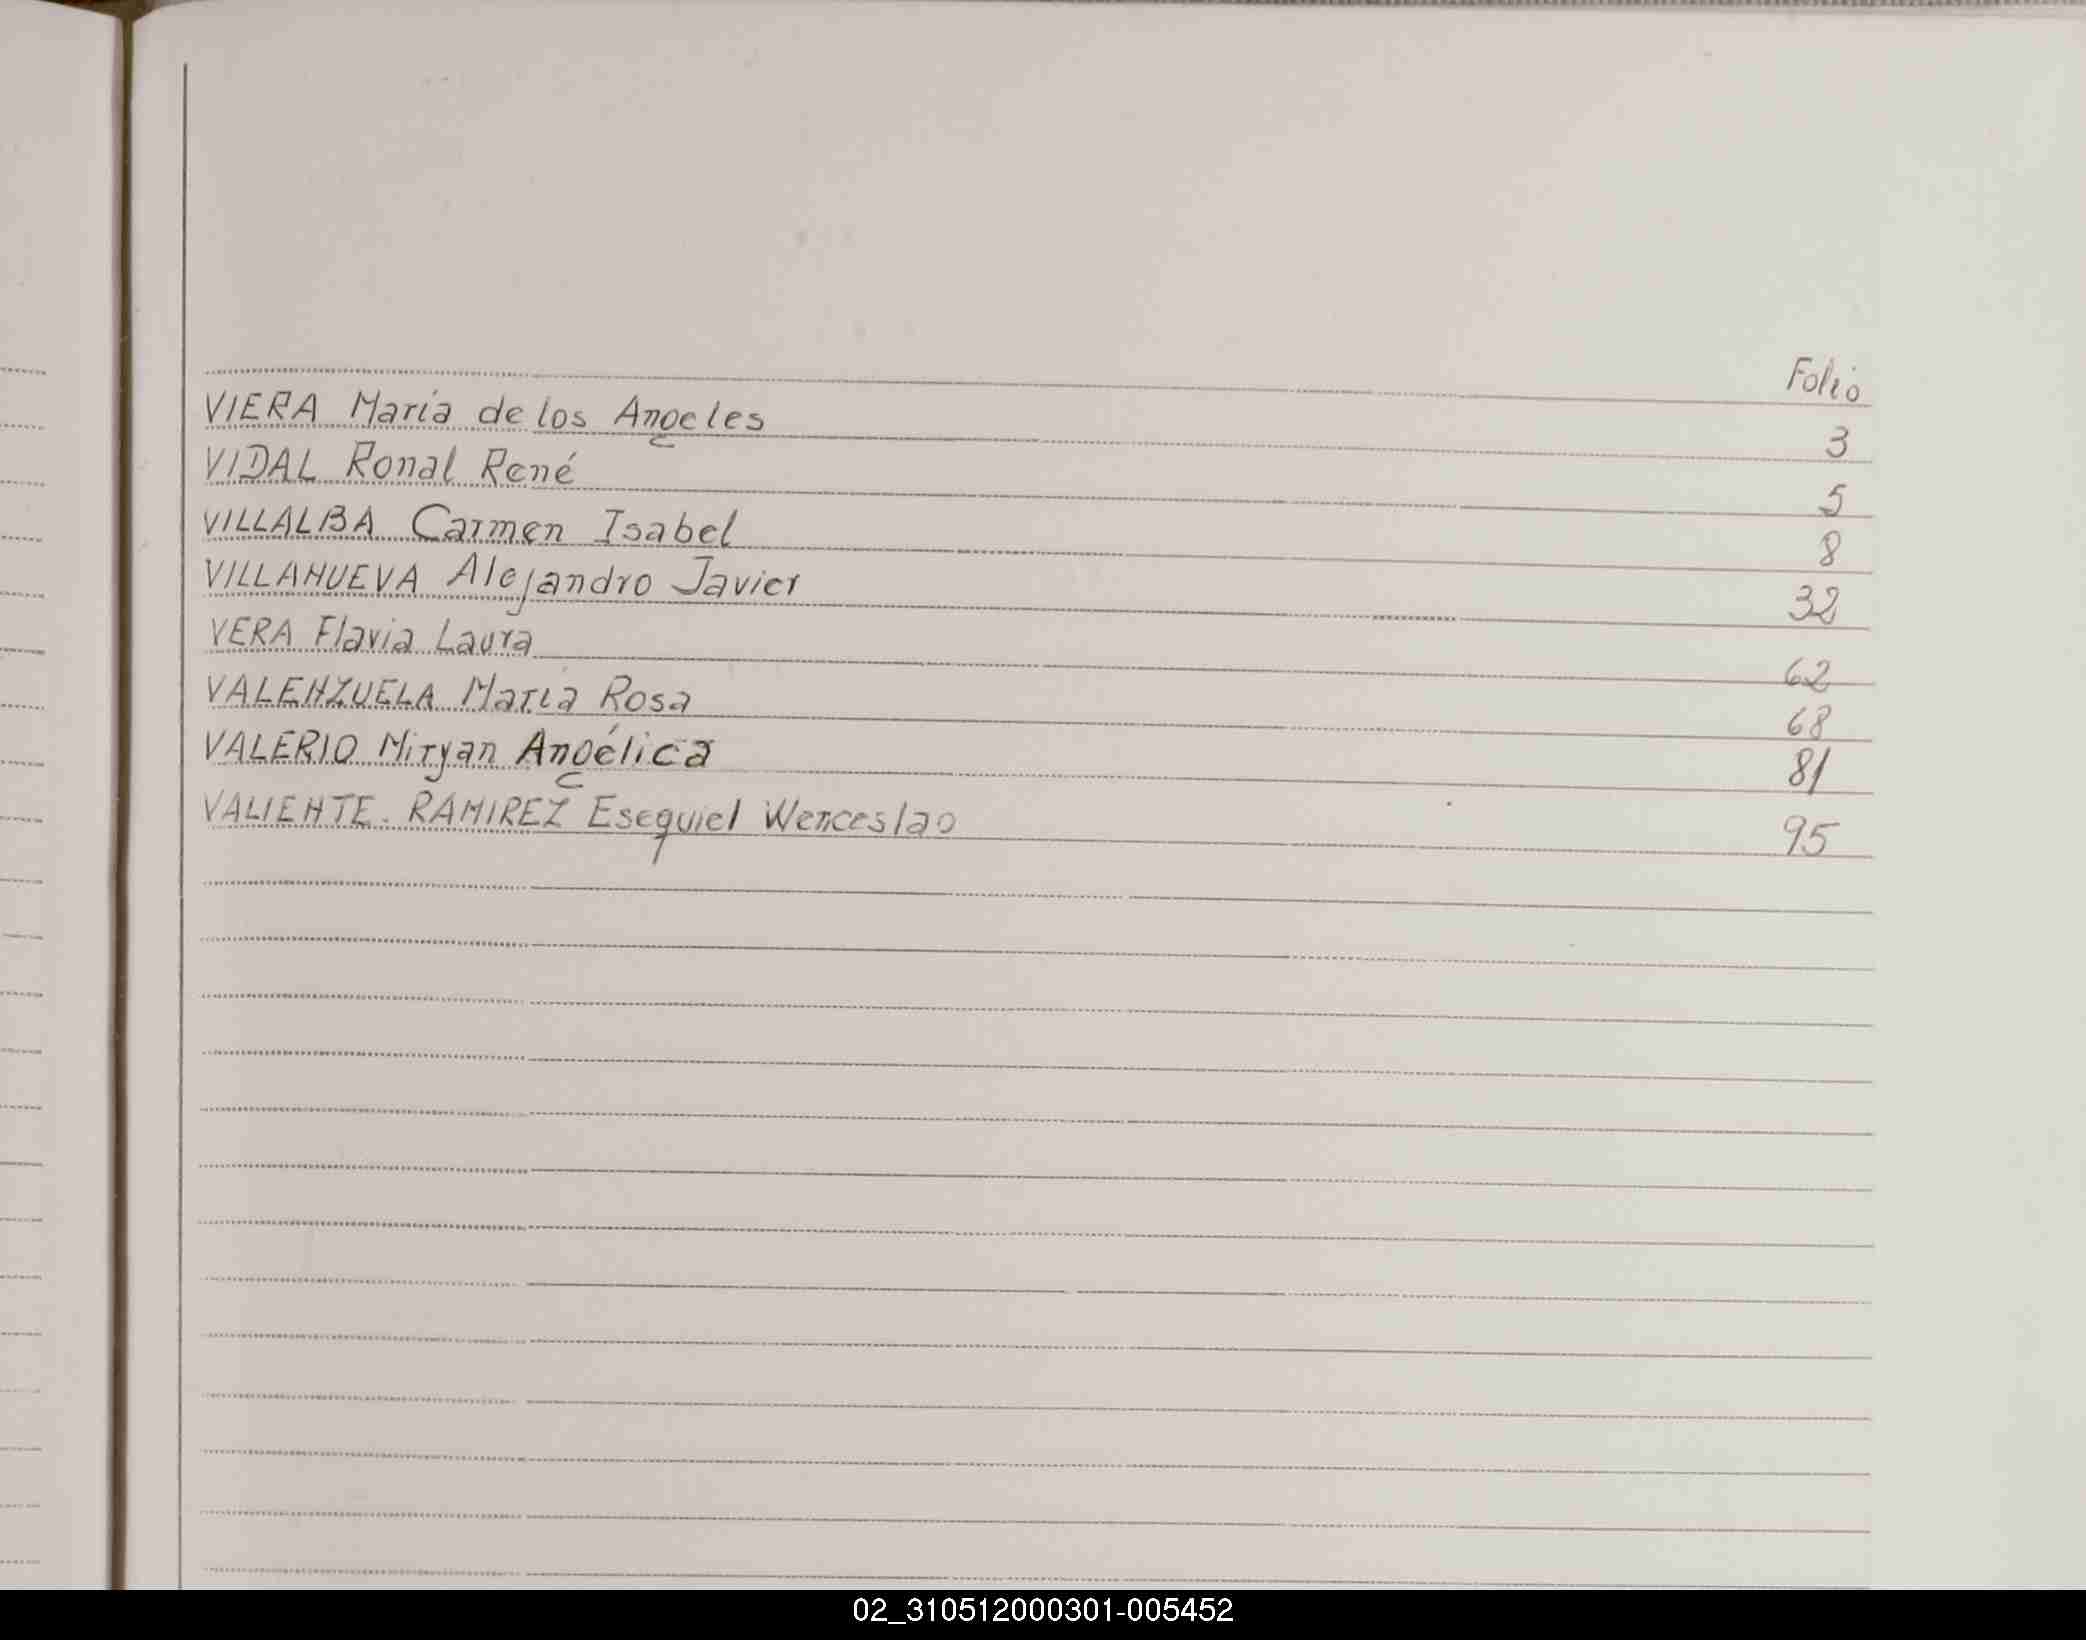 Folio
VIERA María de los Angeles 3
VIDAL Ronal René 5
VILLALBA Carmen Isabel 8
VILLANUEVA Alejandro Javier 32
VERA Flavia Laura 62
VALENZUELA María Rosa 68
VALERIO Miryan Angélica 81
VALIENTE. RAMIREZ Esequiel Wenceslao 95
02_310512000301-005452